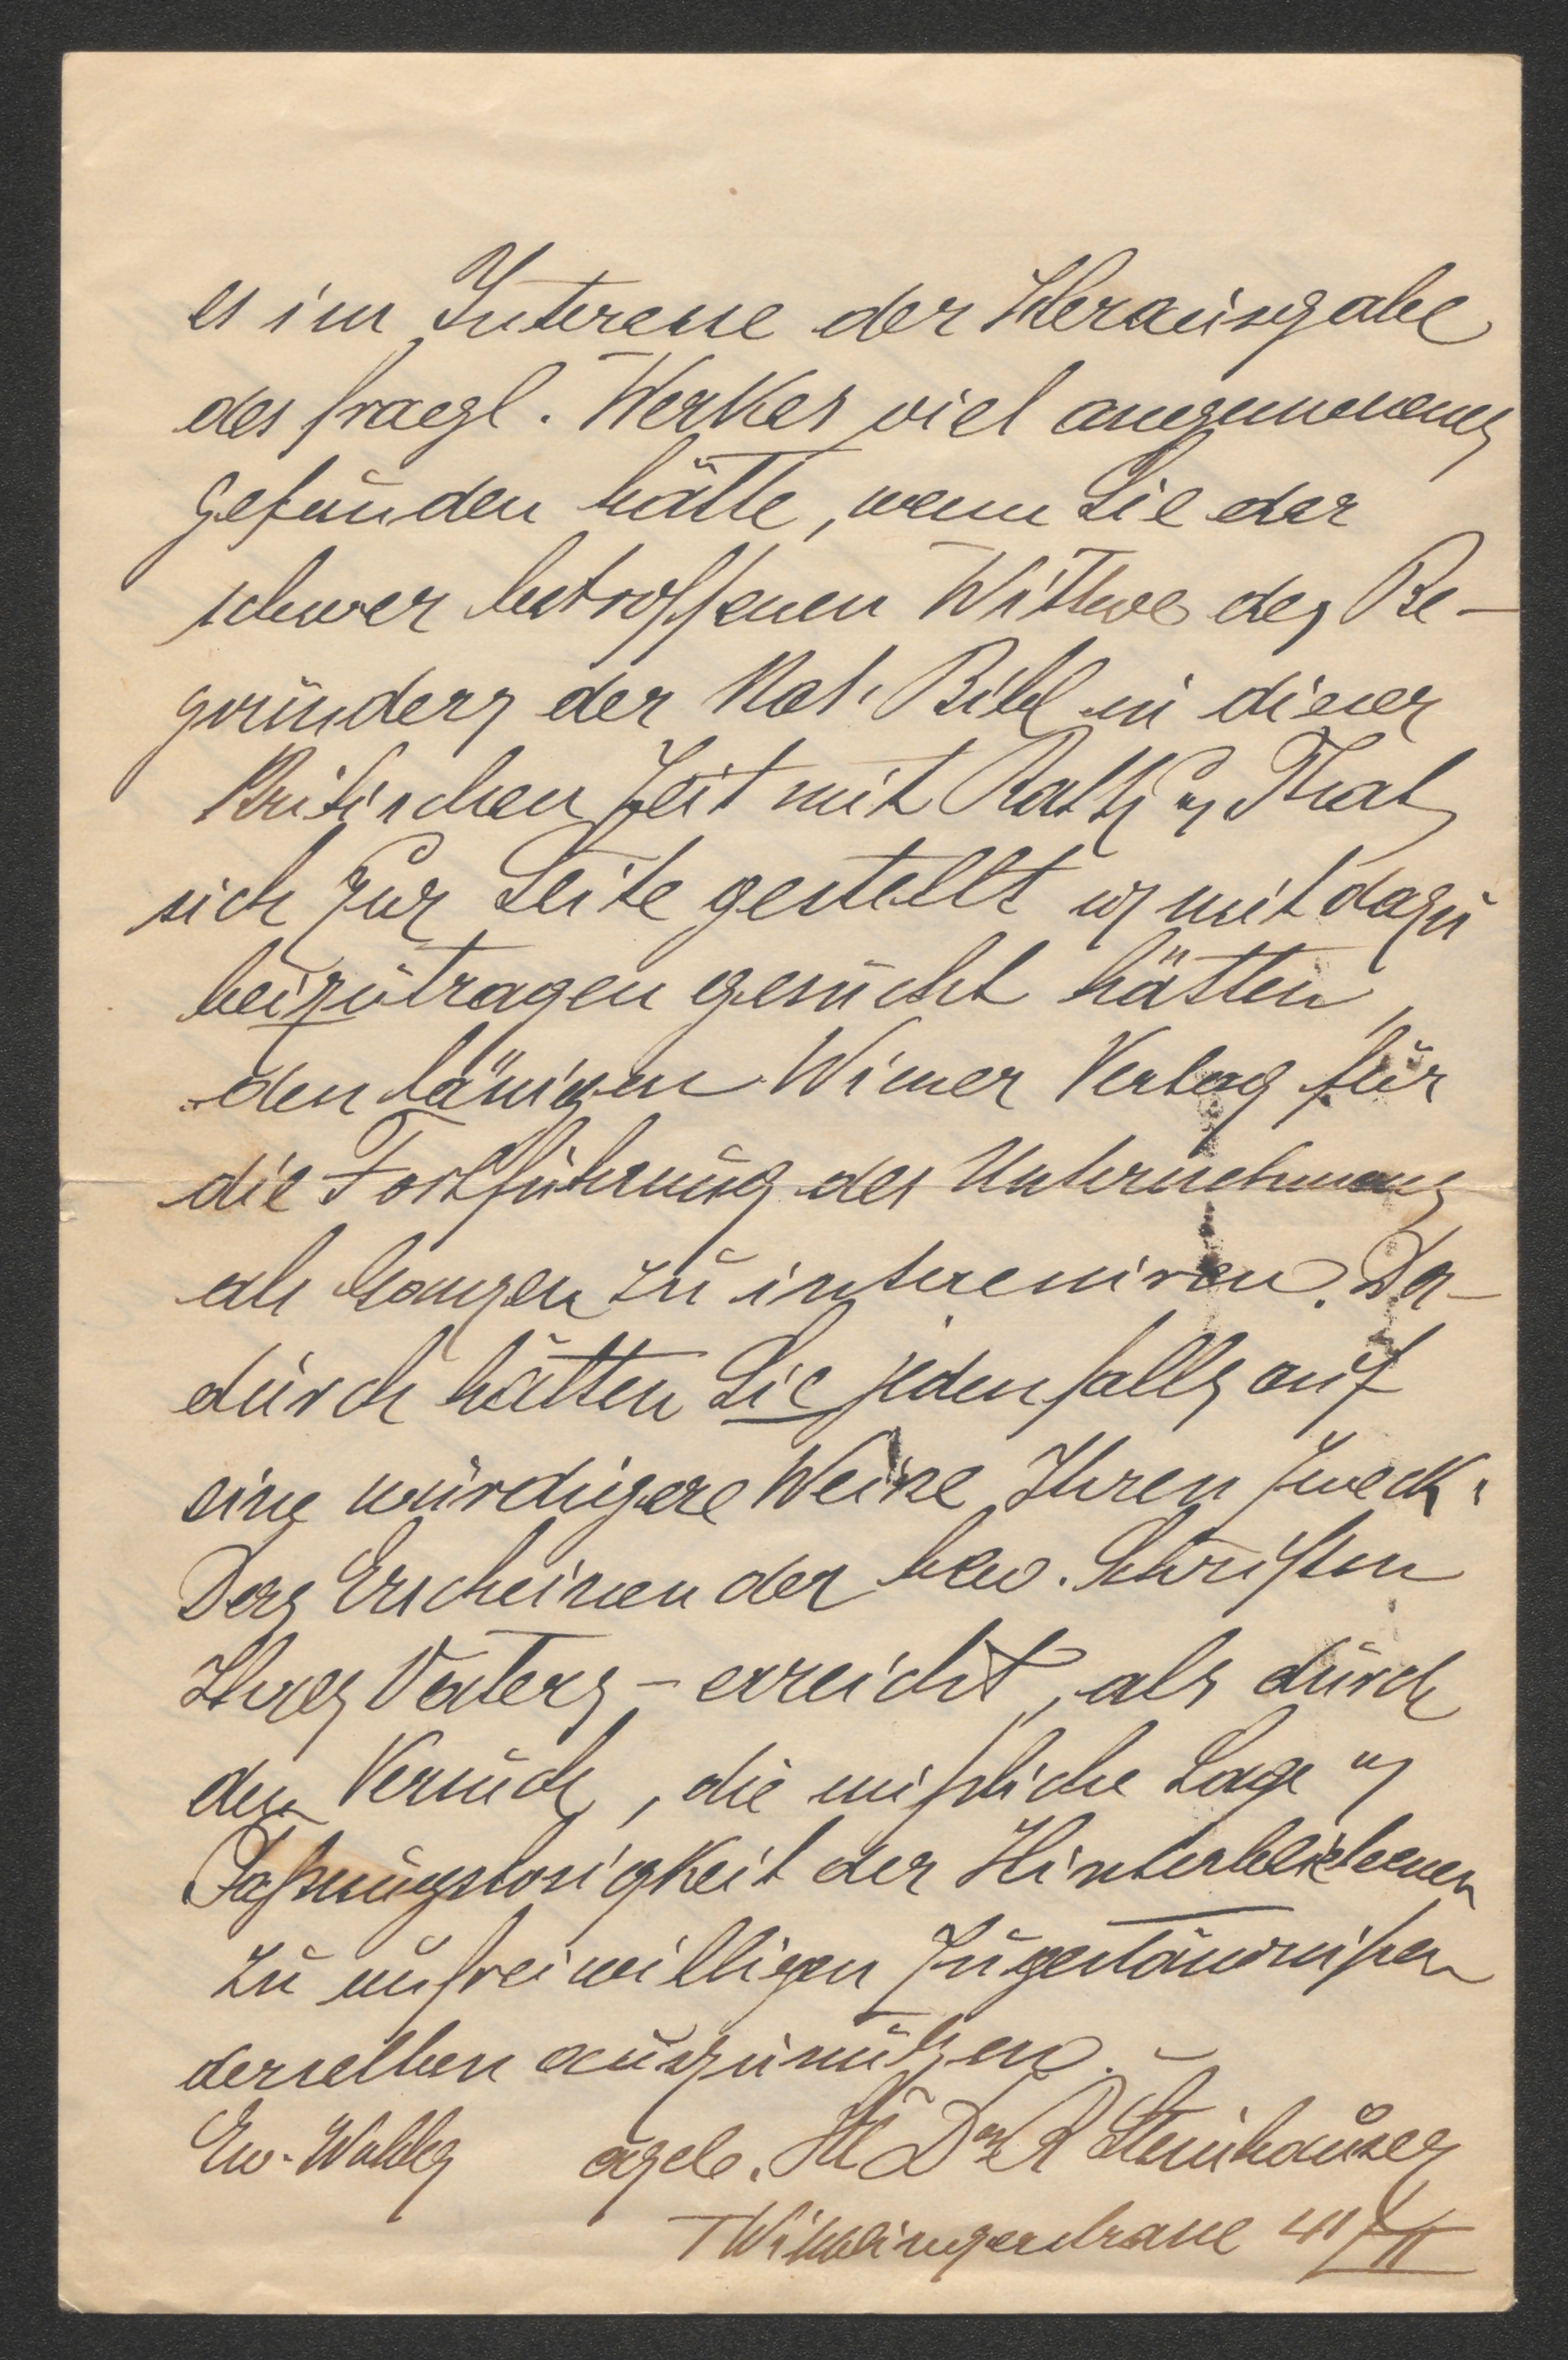 es im Interesse der Herausgabe
des fragl. Werkes viel angemessener
gefunden hätte, wenn Sie der
schwer betroffenen Wittwe des Be-
gründers der Nat. Bibl in dieser
kritischen Zeit mit Rath u That
sich zur Seite gestellt u mit dazu
beizutragen gesucht hätten,
den Wiener Verlag für
die Fortführung des Unternehmens
als Ganzen zu interessiren. Da-
durch hätten Sie jedenfalls auf
eine würdigere Weise Ihren Zweck:
Das Erscheinen der bew. Schriften
Ihres Vaters – erreicht, als durch
den Versuch, die mißliche Lage u
Faßungslosigkeit der Hinterbliebenen
zu unfreiwilligen Zugeständnißen
derselben auszunützen. –
Ew. Wohlg ergeb. Dr R Steinhauser